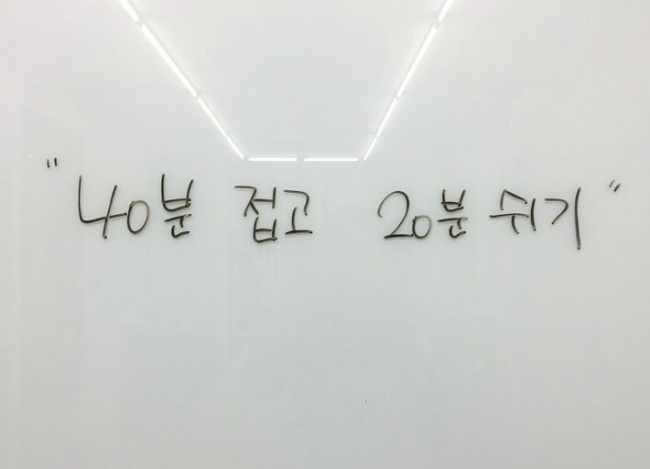 "40분 접고 20분 쉬기"